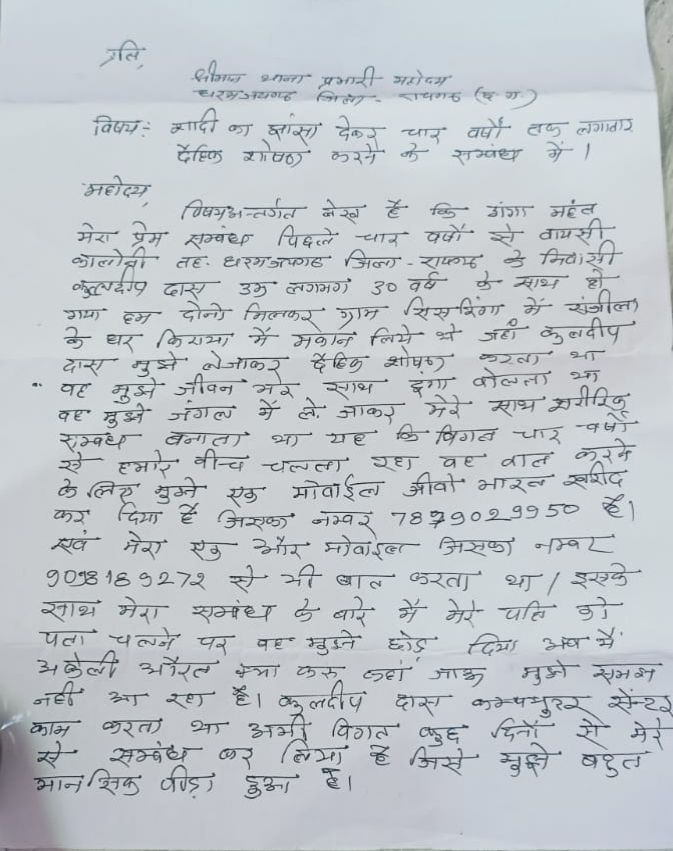 प्रति,
श्रीमान थाना प्रभारी महोदय
धरमजयगढ जिला- रायगढ (छ.ग.)
विषय:- शादी का झांसा देकर चार वर्षों तक लगातार
दैहिक शोषण करने के सम्बंध में ।
महोदय,
विषयअन्तर्गत लेख है कि गंगा महंत
मेरा प्रेम सम्बंध पिछले चार वर्षों से बायसी
कालोनी तह. धरमजयगढ जिला- रायगढ के निवासी
कुलदीप दास उम्र लगभग 30 वर्ष के साथ हो
गया हम दोनो मिलकर ग्राम सिसरिंगा में संजीला
के घर किराया में मकान लिये थे जहाँ कुलदीप
दास मुझे लेजाकर दैहिक शोषण करता था
वह मुझे जीवन भर साथ दूंगा बोलता था
वह मुझे जंगल में ले जाकर मेरे साथ शरीरिक
सम्बंध बनाता था यह कि विगत चार वर्षों
से हमारे बीच चलता रहा वह बात करने
के लिए मुझे एक मोबाईल जीवो भारत खरीद
कर दिया है जिसका नम्बर है।
एवं मेरा एक और मोबाईल जिसका नम्बर
9098189272 से भी बात करता था / इसके
साथ मेरा सम्बंध के बारे में मेरे पति को
पता चलने पर वह मुझे छोड़ दिया अब मैं
अकेली औरत क्या करू कहां जाऊ मुझे समझ
नही आ रहा है। कुलदीप दास कम्प्युटर सेंन्टर
काम करता था अभी विगत कुछ दिनों से मेरे
से सम्बंध कर लिया है जिसे मुझे बहुत
मानसिक पीड़ा हुआ है।